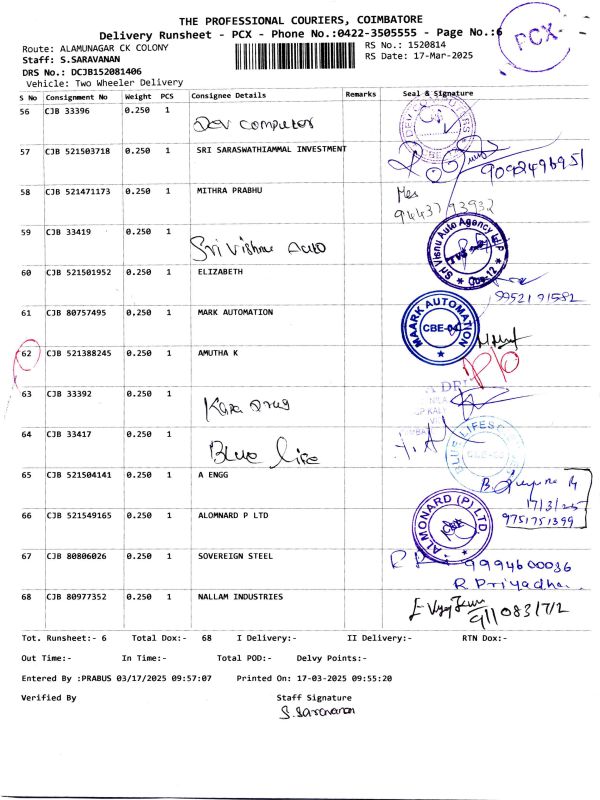 THE PROFESSIONAL COURIERS, COIMBATORE
Delivery Runsheet - PCX - Phone No.:0422-3505555 - Page No.:6
PCX-
Route: ALAMUNAGAR CK COLONY
RS No.: 1520814
Staff: S.SARAVANAN
RS Date: 17-Mar-2025
DRS No.: DCJB152081406
Vehicle: Two Wheeler Delivery
S No Consignment No Weight PCS Consignee Details Remarks Seal & Signature
56 CJB 33396 0.250 1 Dev computer
DEV COMPUTERS
57 CJB 521503718 0.250 1 SRI SARASWATHIAMMAL INVESTMENT
9092496951
58 CJB 521471173 0.250 1 MITHRA PRABHU
94437 93932
59 CJB 33419 0.250 1 Sri Vishnu Auto
Sri Visnu Auto Agency LLP
60 CJB 521501952 0.250 1 ELIZABETH
61 CJB 80757495 0.250 1 MARK AUTOMATION
MAARK AUTOMATION
CBE-04
62 CJB 521388245 0.250 1 AMUTHA K
P/O
63 CJB 33392 0.250 1
64 CJB 33417 0.250 1 Blue life
65 CJB 521504141 0.250 1 A ENGG
17/3/25
9751751399
66 CJB 521549165 0.250 1 ALOMNARD P LTD
ALMONARD (P) LTD
67 CJB 80806026 0.250 1 SOVEREIGN STEEL
9994600036
R Priyadha
68 CJB 80977352 0.250 1 NALLAM INDUSTRIES
Tot. Runsheet:- 6 Total Dox:- 68 I Delivery:- II Delivery:- RTN Dox:-
Out Time:- In Time:- Total POD:- Delvy Points:-
Entered By :PRABUS 03/17/2025 09:57:07 Printed On: 17-03-2025 09:55:20
Verified By Staff Signature
S.Saravanan